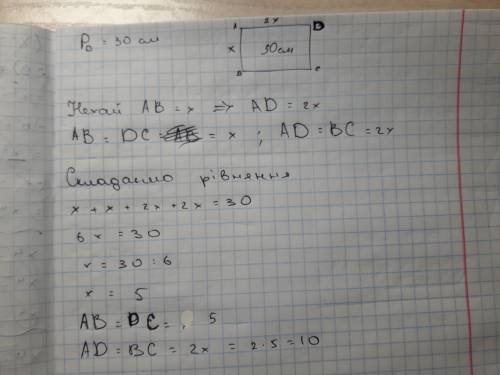 P₀ = 30 см
A 2x D
x 30см
B C
Нехай AB = x ⇒ AD = 2x
AB = DC = x ; AD = BC = 2x
Складаємо рівняння
x + x + 2x + 2x = 30
6x = 30
x = 30 : 6
x = 5
AB = DC = 5
AD = BC = 2x = 2·5 = 10